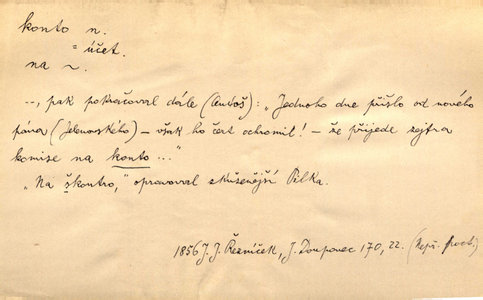 konto n.
= účet.
na ~.
..., pak pokračoval dále (Antoš): „Jednoho dne přišlo od nového
pána (Jelenovského) – však ho čert ochromil! – že přijede zejtra
komise na konto ..."
„Na škontro," opravoval zkušenější Pilka.
1856 J. J. Řezníček, J. 170, 22.